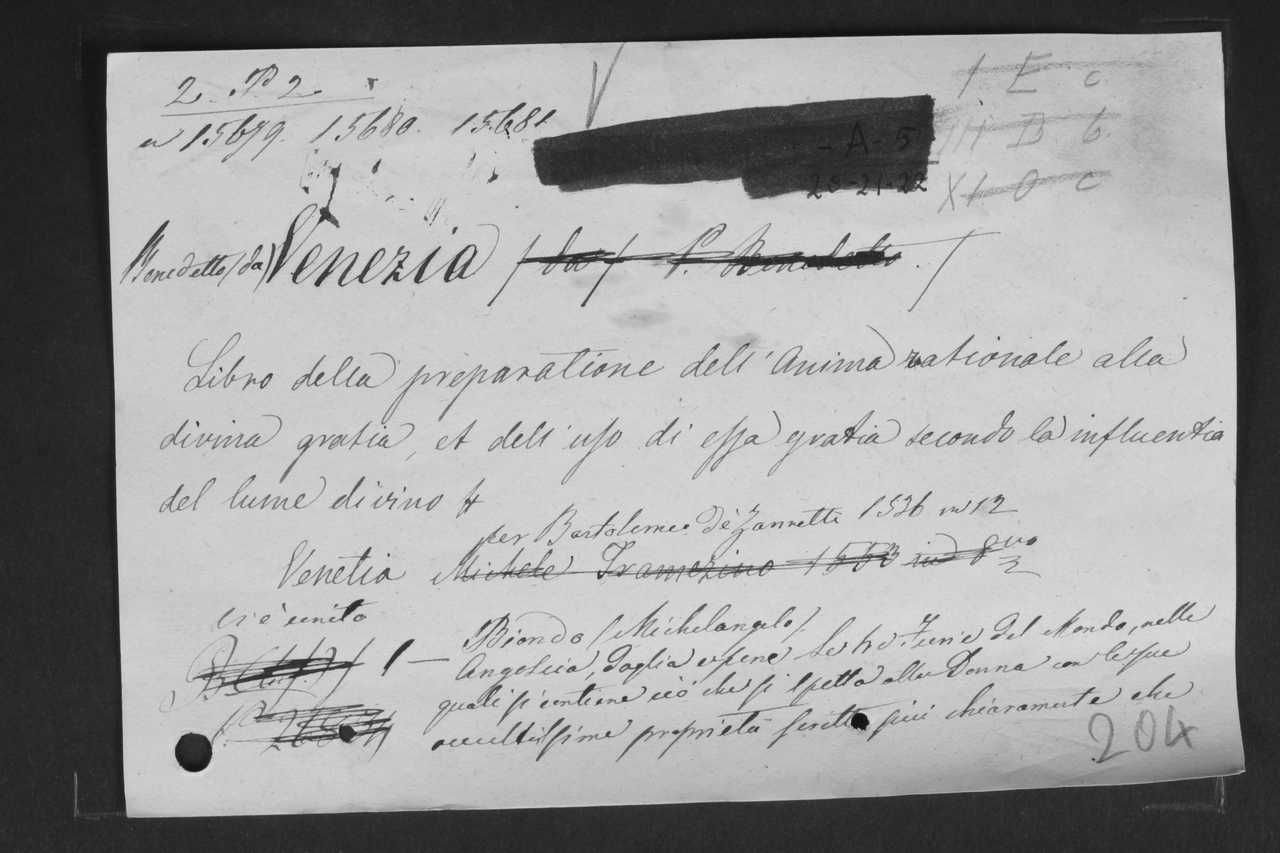 2. P. 2
n 15679. 15680. 15681
1 E c
- A - 5
III B b.
20-21-22
XI O c
Benedetto (da) Venezia (da) P. Benedetto.
Libro della preparatione dell'Anima rationale alla
divina gratia, et dell'uso di essa gratia secondo la influentia
del lume divino
per Bartolomeo de Zannetti 1536 in 12
Venetia Michele Tramezino 1553 in 8vo
vi è unito
1 — Biondo (Michelangelo).
Angoscia, doglia e pene le tre Furie del Mondo, nelle
quali si contiene ciò che si spetta alla Donna con le sue
occultissime proprietà scritte più chiaramente che
204